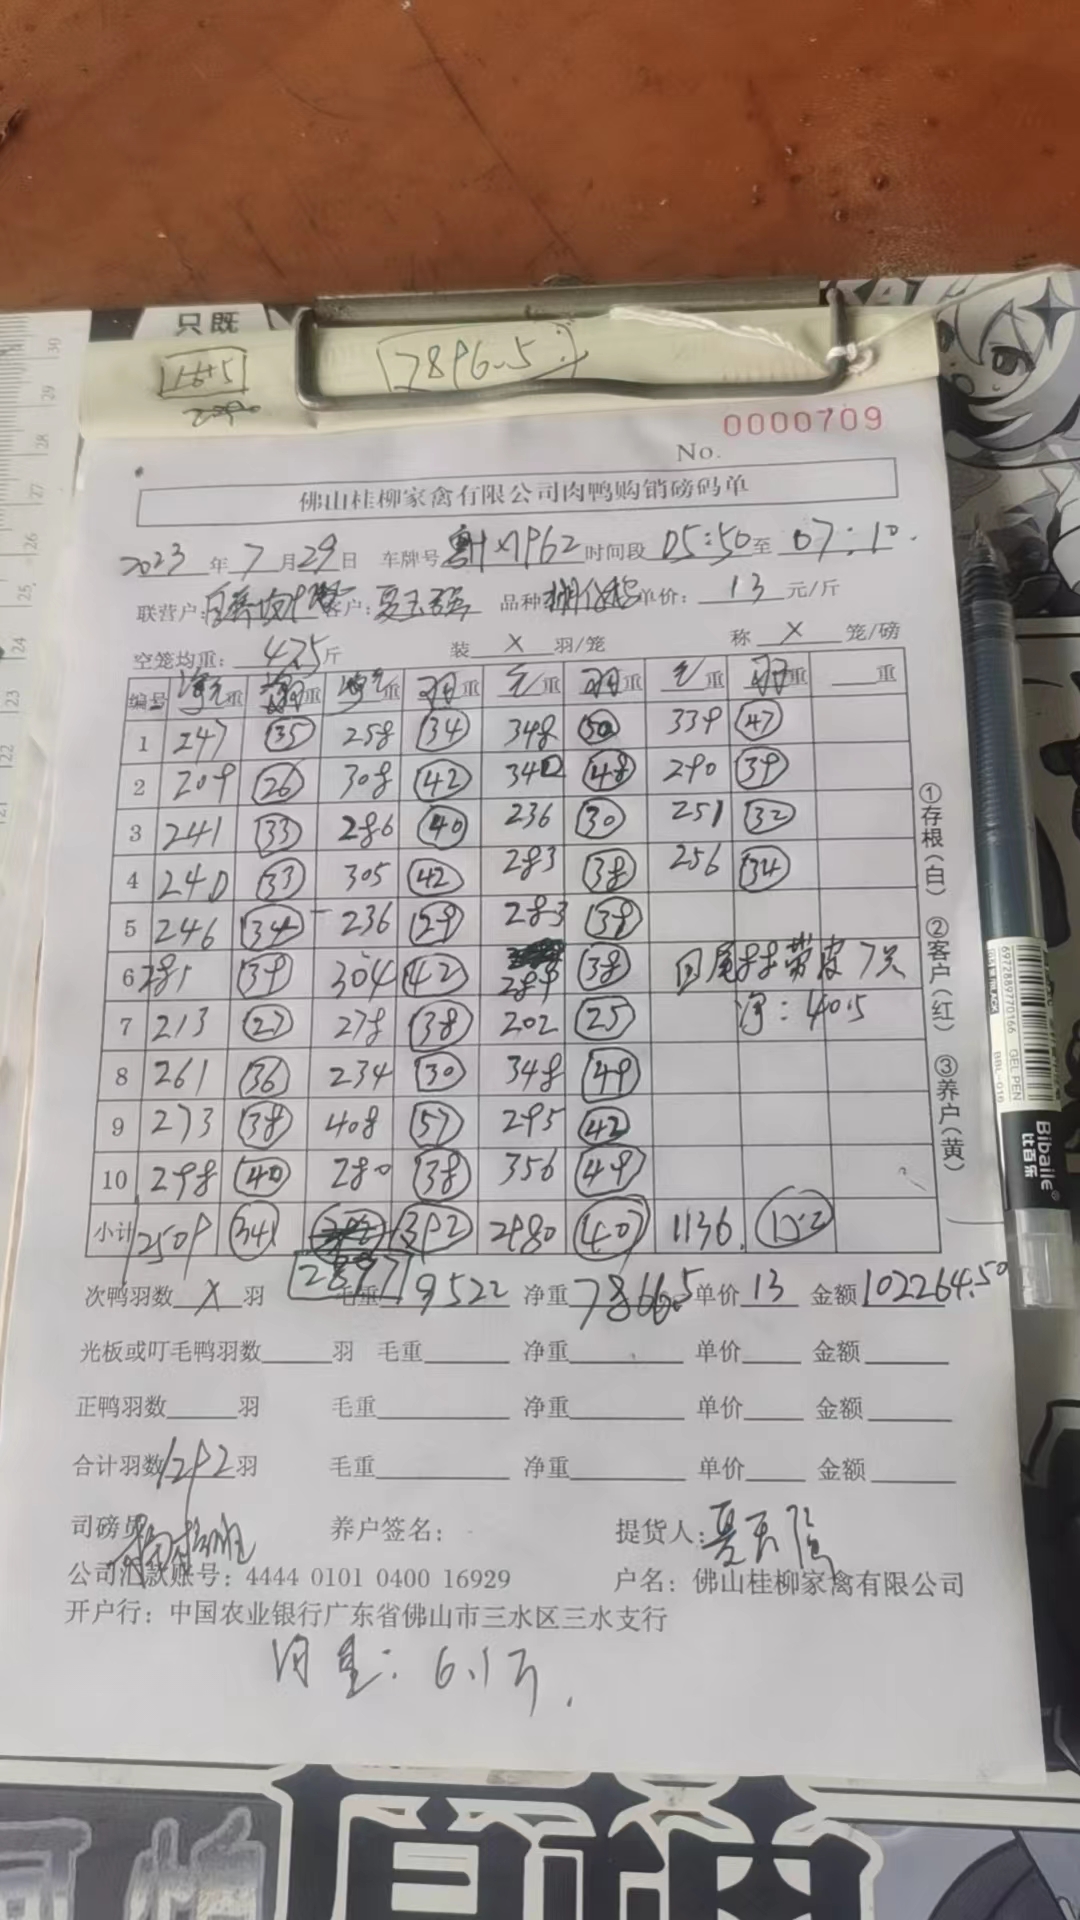 只既
16+5
2896.5
0000709
No.
佛山桂柳家禽有限公司肉鸭购销磅码单
2023年7月29日 车牌号 X7P62 时间段 05:50至07:10.
联营户: 客户: 夏玉强 品种 单价: 13 元/斤
空笼均重: 475斤 装 X 羽/笼 称 X 笼/磅
编号 重 重 毛重 羽重 毛重 羽重 毛重 羽重 重
1 247 35 258 34 348 50 339 47
2 209 26 308 42 340 48 290 39
3 241 33 286 40 236 30 251 32
4 240 33 305 42 283 38 256 34
5 246 34 236 29 283 38
6 281 39 304 42 284 38
7 213 27 278 38 202 25
8 261 36 234 30 348 49
9 273 38 408 57 295 42
10 298 40 280 38 356 49
回尾 带皮7只
净: 40.5
小计 2509 341 392 2980 407 1136. 152
2897
次鸭羽数 X 羽 毛重 9522 净重 7866.5 单价 13 金额 102264.50
光板或叮毛鸭羽数 羽 毛重 净重 单价 金额
正鸭羽数 羽 毛重 净重 单价 金额
合计羽数 1292 羽 毛重 净重 单价 金额
司磅员: 养户签名: 提货人:
公司汇款账号: 4444 0101 0400 16929 户名: 佛山桂柳家禽有限公司
开户行: 中国农业银行广东省佛山市三水区三水支行
均重: 6.1斤.
①存根(白) ②客户(红) ③养户(黄)
6972889770166
GEL PEN
BBL-019
Bibaile
比百乐